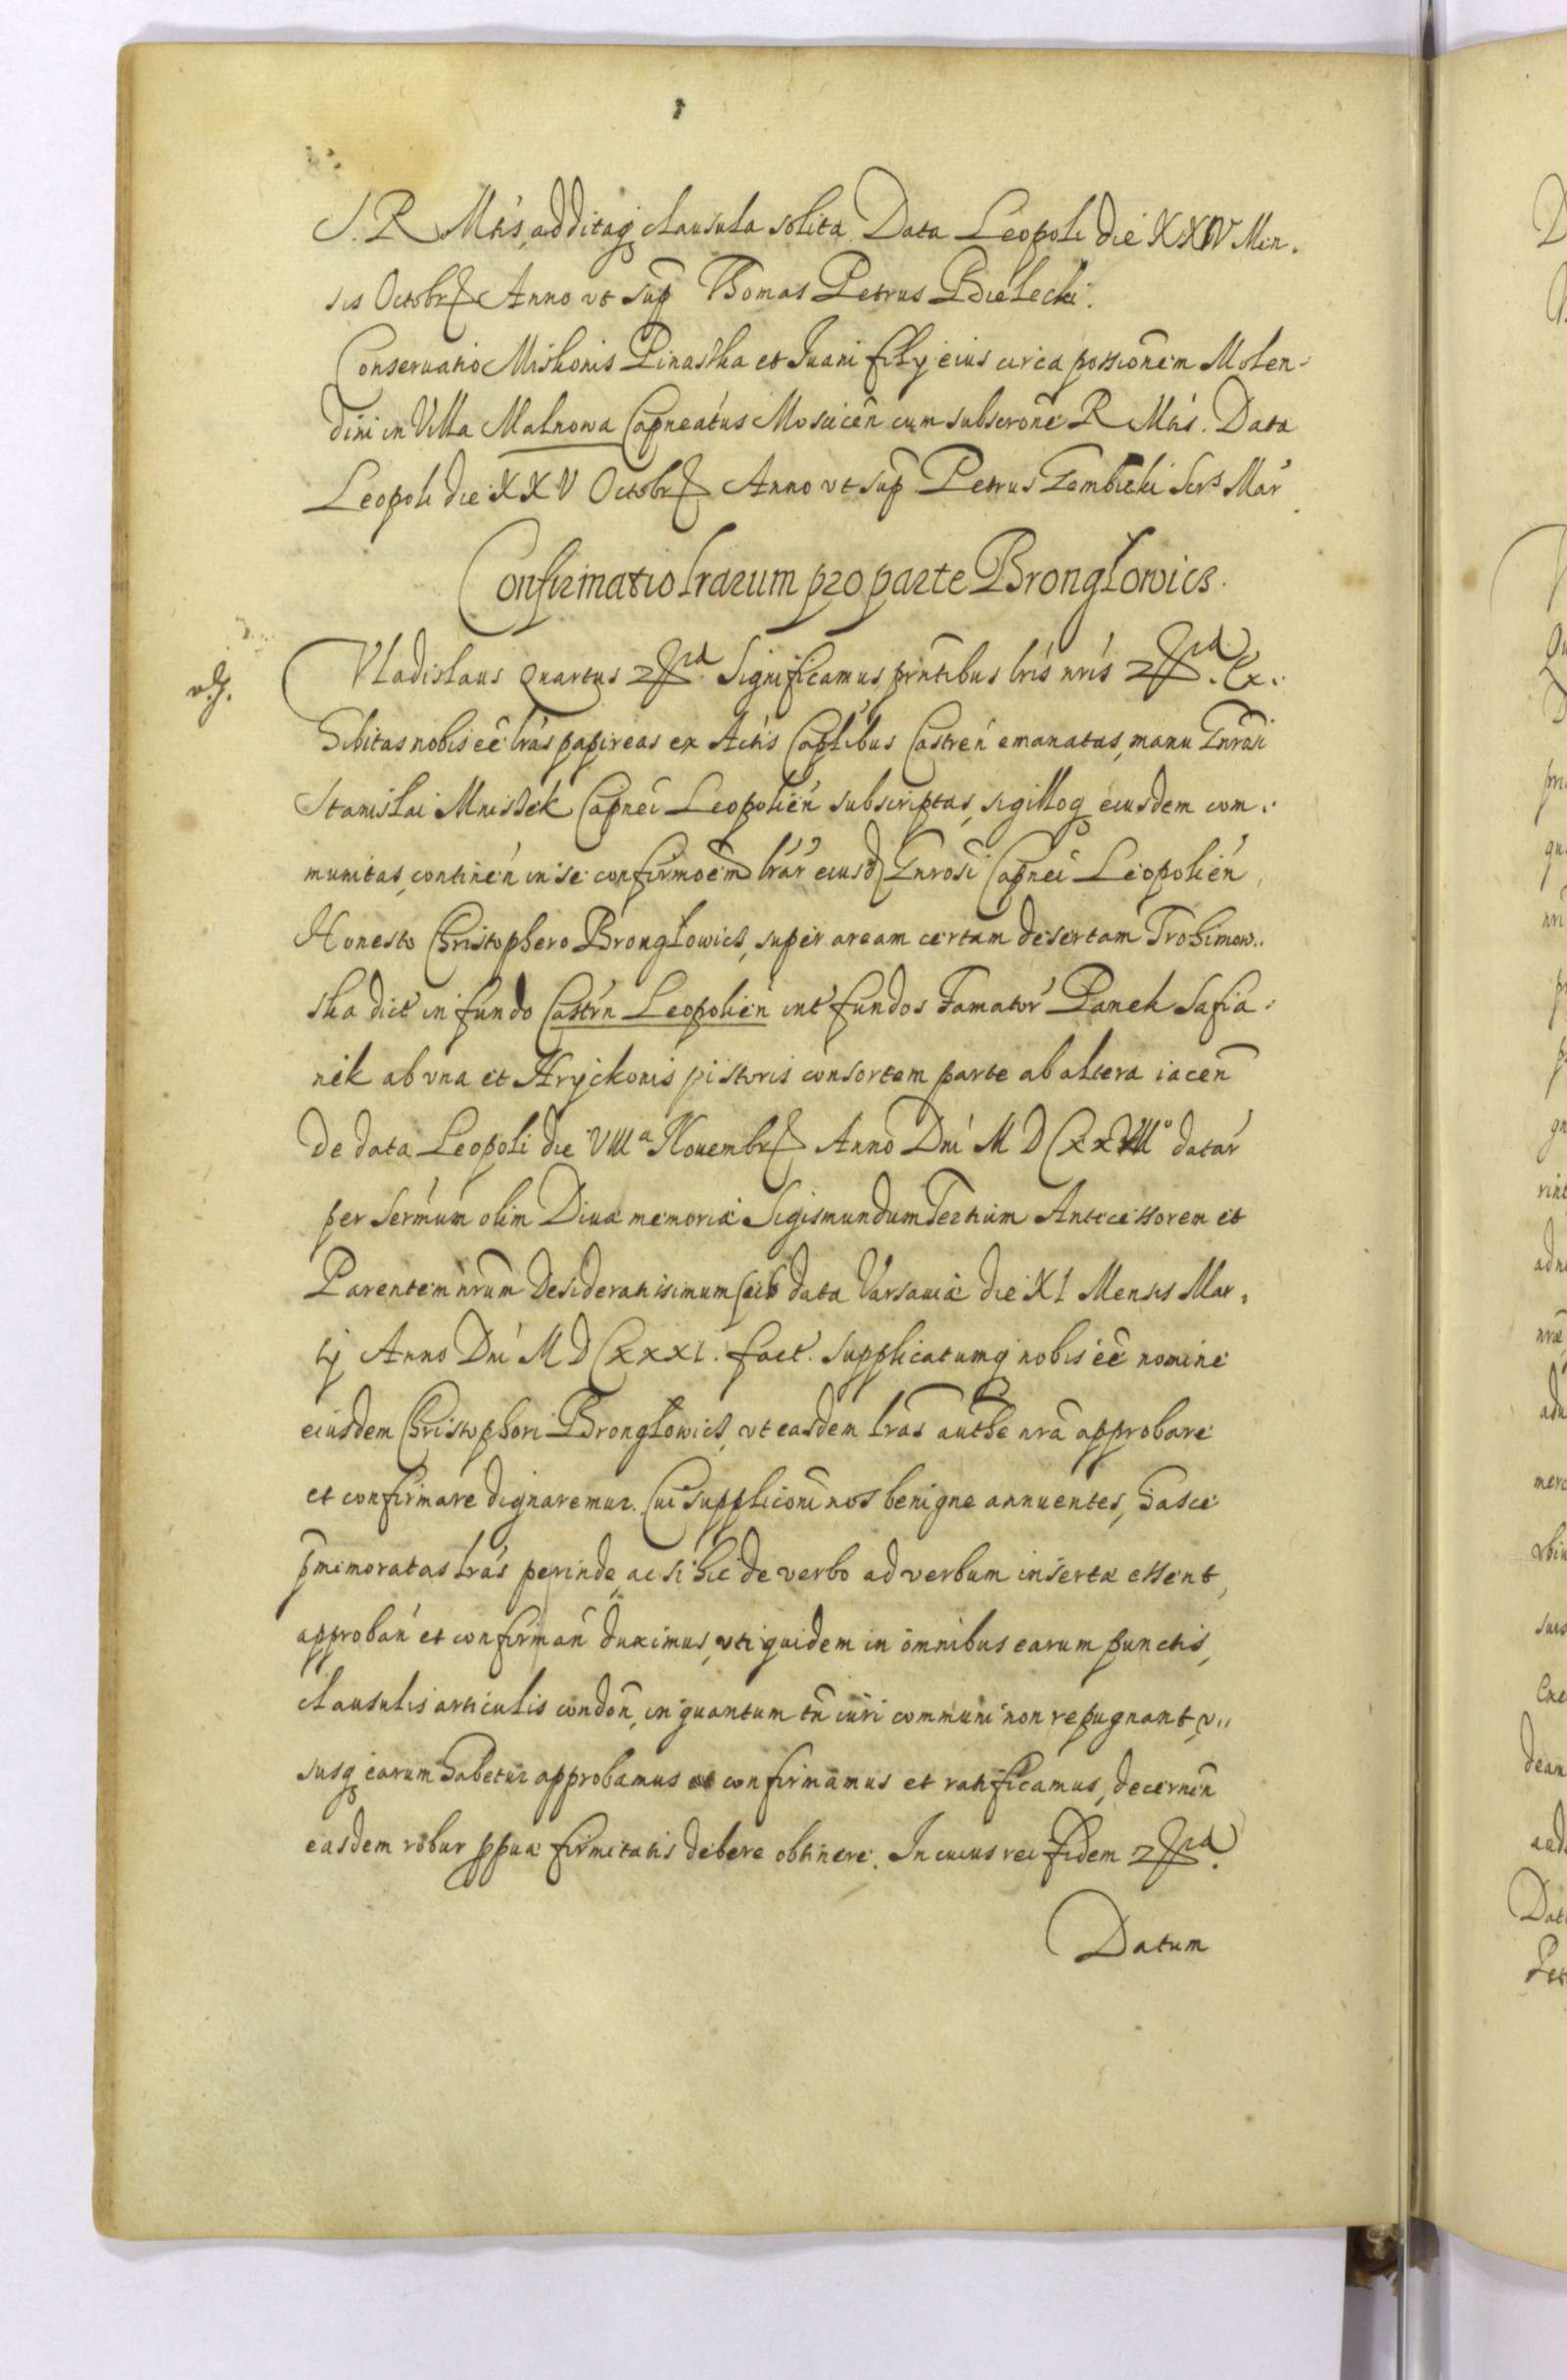 S. R Mtis, additaq clausula solita Data Leopoli die XXIV Men.
sis Octobr Anno vt sup Thomas Petrus Bielecki.
Conseruatio Miskonis Pinaska et Iuani filij eius circa possionem Molen:
dini in Villa Malnowa Capneatus Moscicen cum subscrone R Mtis. Data
Leopoli die XXV Octobr Anno vt sup Petrus Gembicki Scrs Mar
Confirmatio lrarum pro parte Bronglowicz.
Vladislaus Quartus Significamus prntibus lris nris Ex.
hibitas nobis eē lras papireas ex Actis Captibus Castren emanatas, manu Gnrosi
Stanislai Mniszek Capnei Leopolien subscriptas, sigilloq eiusdem com:
munitas, continen in se confirmoem lrar eiusd Gnrosi Capnei Leopolien,
Honesto Christophero Bronglowicz, super aream certam desertam Trohimow..
ska dict in fundo Castrn Leopolien int fundos Famator Panek Safia:
nik ab vna et Hryckonis pistoris consortem parte ab altera iacen
de data Leopoli die VIIIa Nouembr Anno Dni M D CXXVIIIo datar
per Sermum olim Diuæ memoriæ Sigismundum Tertium Antecessorem et
Parentem nrum Desideratisimum sub data Varsauiæ die XI Mensis Mar,
tij Anno Dni M D CXXXI. fact. Supplicatumq nobis eē nomine
eiusdem Christophori Bronglowicz, vt easdem lras authe nra approbare
et confirmare dignaremur. Cui supplicōni nos benigne annuentes, hasce
pmemoratas lras perinde, ac si hic de verbo ad verbum insertæ essent,
approban et confirman duximus, vti quidem in omnibus earum punctis,
clausulis articulis condon, in quantum tn iuri communi non repugnant, v..
susq earum habetur approbamus et confirmamus et ratificamus, decernen
easdem robur ppuæ firmitatis debere obtinere. In cuius rei fidem
Datum